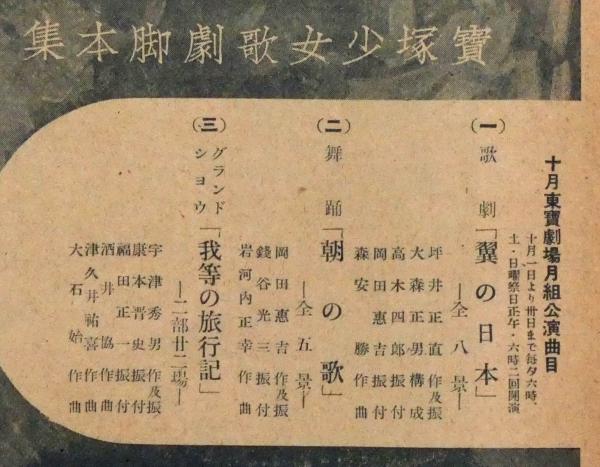 集本脚劇歌女少塚寶
十月東寶劇場月組公演曲目
十月一日より卅日まで毎夕六時、
土・日曜祭日正午・六時二回開演
(一)歌劇「翼の日本」
―全八景―
坪井正直作及振
大森正男構成
高木四郎振付
岡田惠吉作曲
森安勝作曲
(二)舞踊「朝の歌」
―全五景―
岡田惠吉作及振
錢谷光三振付
岩河内正幸作曲
(三)グランドショウ「我等の旅行記」
―二部廿二場―
宇津秀男作及振
康本晋史振付
福田正一振付
酒井協作曲
津久井祐喜作曲
大石始作曲